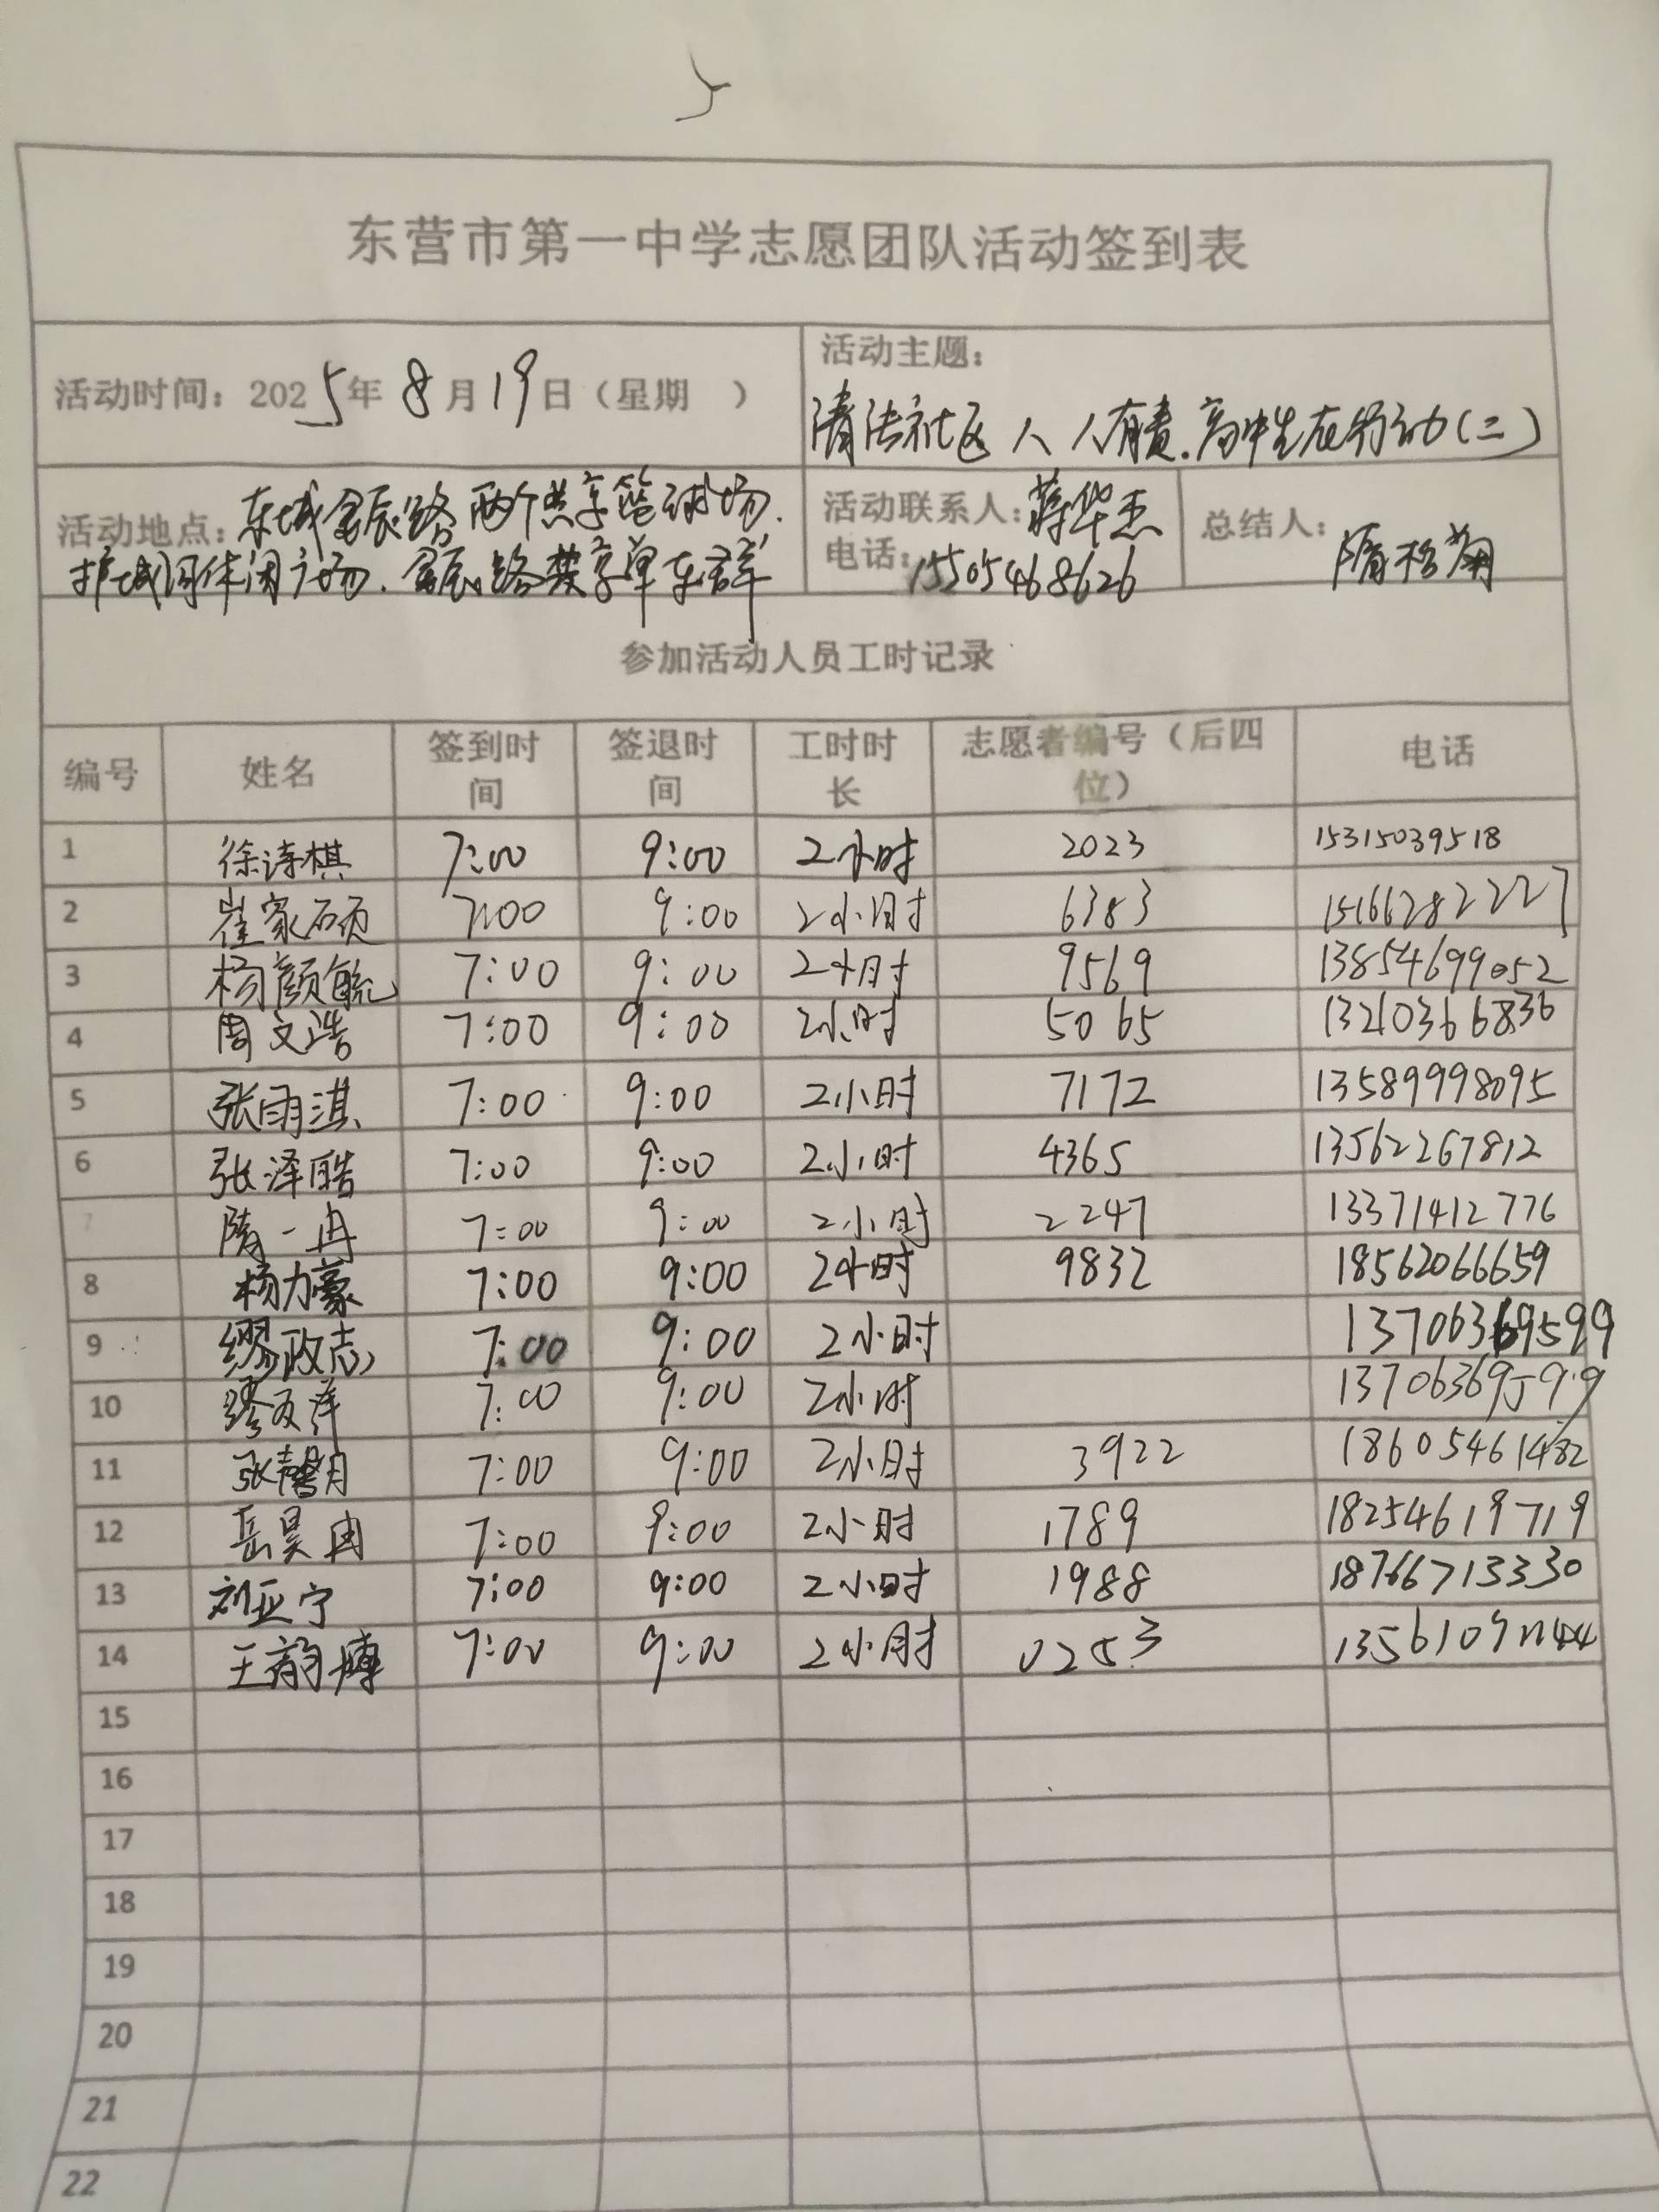 5
东营市第一中学志愿团队活动签到表
活动时间：2025年8月19日（星期　）
活动主题：
清洁社区人人有责.高中生在行动(二)
活动地点：东城金辰路两个共享篮球场.
护城河休闲广场.金辰路共享单车群
活动联系人：蒋华杰
电话：15505468626
总结人：
隋格翔
参加活动人员工时记录
编号 姓名 签到时间 签退时间 工时时长 志愿者编号（后四位） 电话
1 徐诗棋 7:00 9:00 2小时 2023 15315039518
2 崔家硕 7:00 9:00 2小时 6383 15166282227
3 杨颜毓 7:00 9:00 2小时 9569 13854699052
4 周文浩 7:00 9:00 2小时 5065 13210366836
5 张雨淇 7:00 9:00 2小时 7172 13589998095
6 张泽皓 7:00 9:00 2小时 4365 13562267812
7 隋一冉 7:00 9:00 2小时 2247 13371412776
8 杨力豪 7:00 9:00 2小时 9832 18562066659
9 缪政志 7:00 9:00 2小时 13706369599
10 缪友洋 7:00 9:00 2小时 13706369599
11 张馨月 7:00 9:00 2小时 3922 18605461482
12 岳昊冉 7:00 9:00 2小时 1789 18254619719
13 刘亚宁 7:00 9:00 2小时 1988 18766713330
14 王韵博 7:00 9:00 2小时 0253
15
16
17
18
19
20
21
22